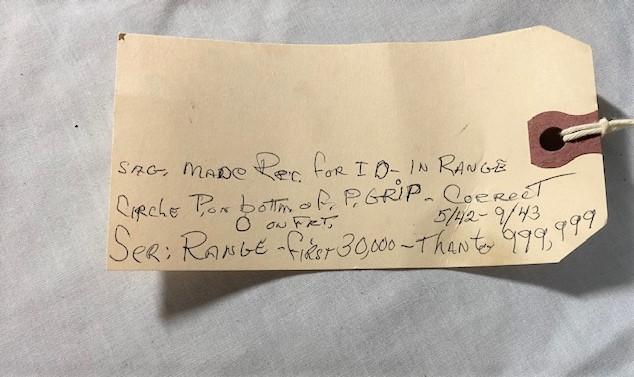 SAG. MADE Rec. FOR I D - IN RANGE
Circle P. on bottm. of. P. GRIP - CORRECT
O ON FRT. 5/42 - 9/43
SER: RANGE - first 30,000 - Than to 999,999